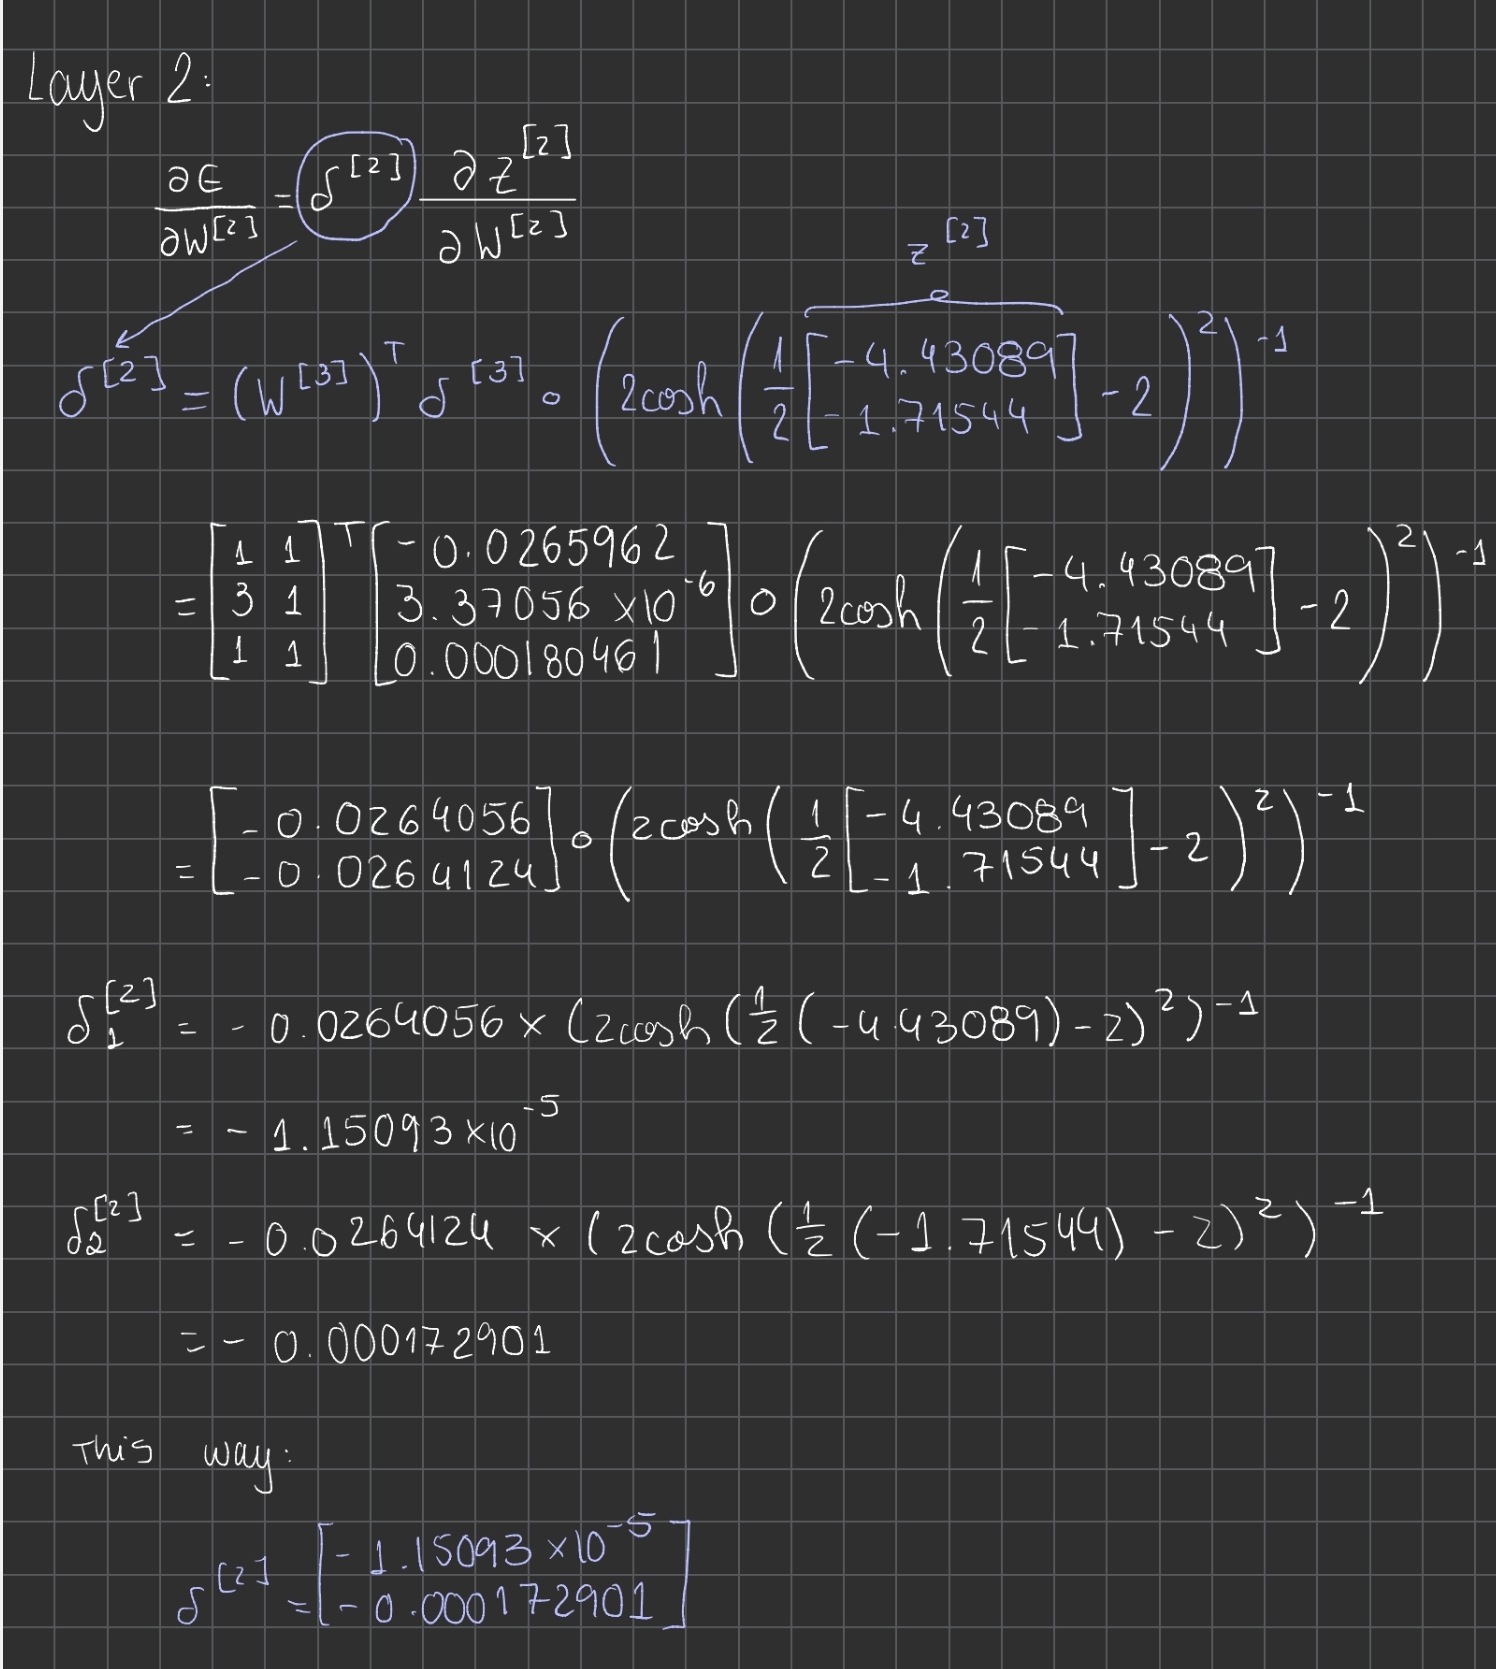 Layer 2:
∂E/∂W^[2] = δ^[2] ∂z^[2]/∂W^[2]
z^[2]
δ^[2] = (W^[3])^T δ^[3] ∘ (2cosh(1/2 [-4.43089; -1.71544] - 2)^2)^-1
= [1 1; 3 1; 1 1]^T [-0.0265962; 3.37056 ×10^-6; 0.000180461] ∘ (2cosh(1/2 [-4.43089; -1.71544] - 2)^2)^-1
= [-0.0264056; -0.0264124] ∘ (2cosh(1/2 [-4.43089; -1.71544] - 2)^2)^-1
δ_1^[2] = - 0.0264056 × (2cosh(1/2 (-4.43089) - 2)^2)^-1
= - 1.15093 ×10^-5
δ_2^[2] = - 0.0264124 × (2cosh(1/2 (-1.71544) - 2)^2)^-1
= - 0.000172901
This way:
δ^[2] = [-1.15093 ×10^-5; -0.000172901]